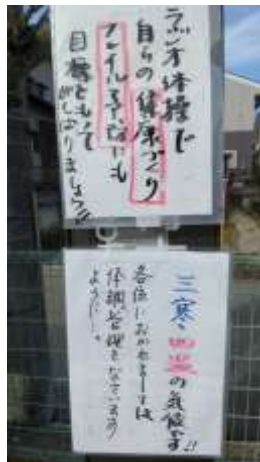 ラジオ体操で
自らの健康づくり
フレイル予防にも
目標ともって
がんばりましょう!!
三寒四温の気候です!!
各位におかれましては
体調管理をなさいます
ように。